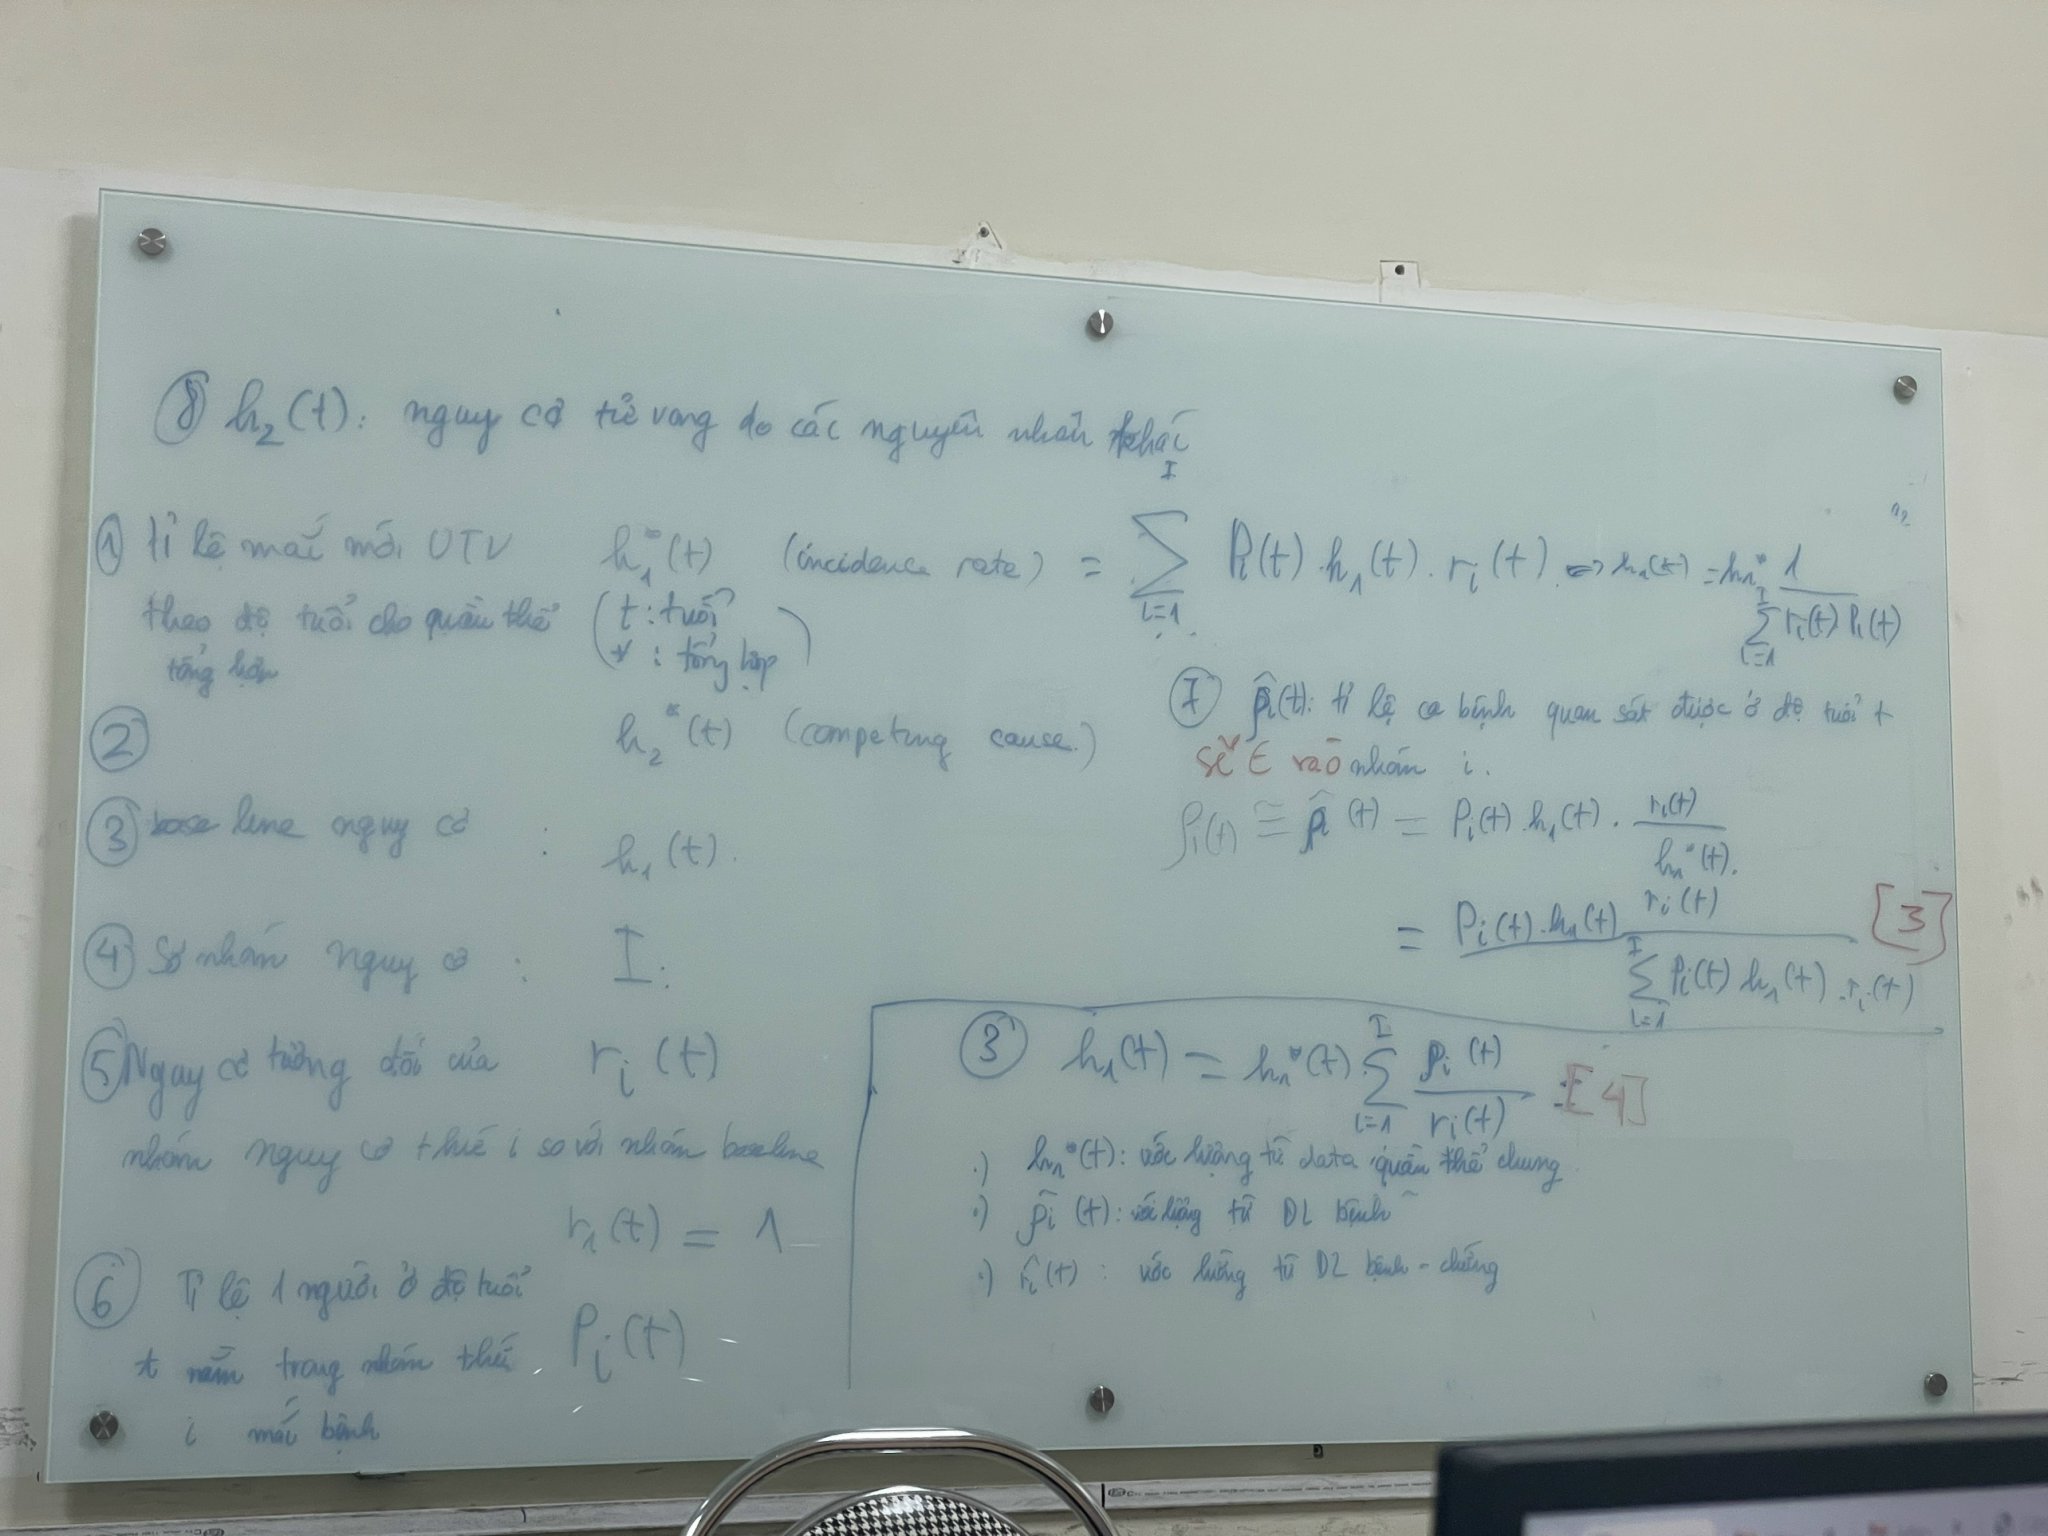 ⑧ h₂(t): nguy cơ tử vong do các nguyên nhân khác
① tỉ lệ mắc mới UTV h₁*(t) (incidence rate) = \sum_{i=1}^{I} Pᵢ(t) . h₁(t) . rᵢ(t) ⇔ h₁(t) = h₁* \frac{1}{\sum_{i=1}^{I} rᵢ(t) Pᵢ(t)}
theo độ tuổi cho quần thể (t : tuổi
tổng hợp * : tổng hợp)
② h₂*(t) (competing cause.)
③ base line nguy cơ : h₁(t).
④ Số nhóm nguy cơ : I.
⑤ Nguy cơ tương đối của rᵢ(t)
nhóm nguy cơ thứ i so với nhóm baseline
r₁(t) = 1
⑥ Tỉ lệ 1 người ở độ tuổi
t nằm trong nhóm thứ Pᵢ(t)
i mắc bệnh
⑦ ρ̂ᵢ(t): tỉ lệ ca bệnh quan sát được ở độ tuổi t
sẽ ∈ vào nhóm i.
ρᵢ(t) ≅ ρ̂ᵢ(t) = Pᵢ(t) . h₁(t) . \frac{rᵢ(t)}{h₁*(t).}
= Pᵢ(t) . h₁(t) \frac{rᵢ(t)}{\sum_{i=1}^{I} Pᵢ(t) h₁(t) . rᵢ(t)} [3]
③ h₁(t) = h₁*(t) . \sum_{i=1}^{I} \frac{ρᵢ(t)}{rᵢ(t)} [4]
.) h₁*(t): ước lượng từ data quần thể chung
.) ρ̂ᵢ(t): ước lượng từ DL bệnh
.) r̂ᵢ(t) : ước lượng từ DL bệnh - chứng